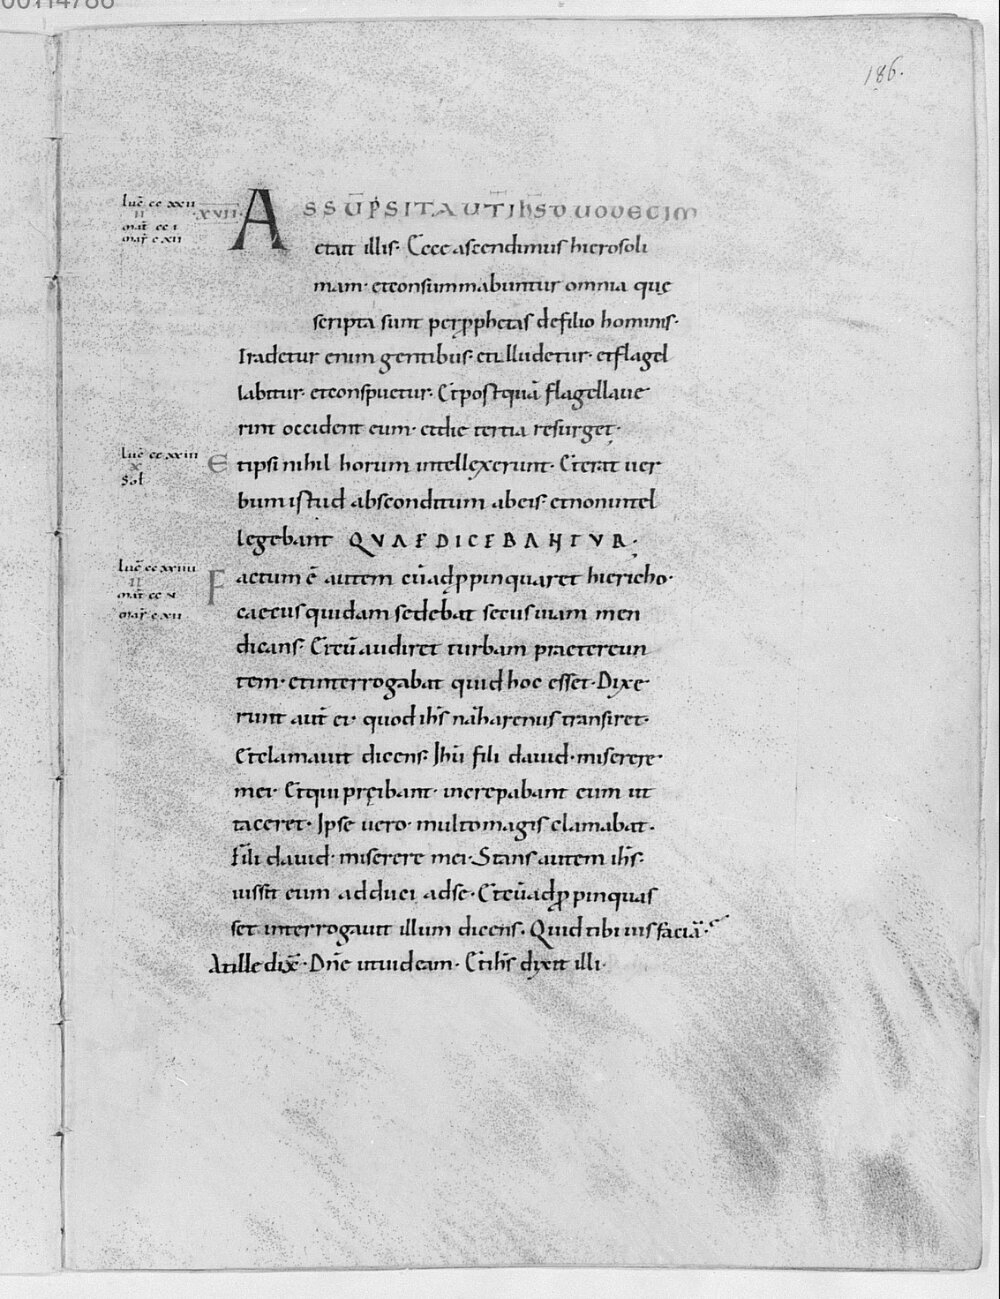 00114786
186.
luc̄ cc xxii
II
mat̄ cc i
mar̄ c xii
·XVII·
ASSŪPSIT AUT̄ IHS̄ DUODECIM
et ait illis· Ecce ascendimus hierosoli
mam· et consummabuntur omnia quę
scripta sunt per p̱phetas de filio hominis·
Tradetur enim gentibus· et illudetur· et flagel
labitur· et conspuetur· Et postquā flagellaue
rint occident eum· et die tertia resurget·
luc̄ cc xxiii
x
Sol
Et ipsi nihil horum intellexerunt· Et erat uer
bum istud absconditum ab eis· et non intel
legebant QVAE DICEBANTVR·
luc̄ cc xxiiii
II
mat̄ cc v
mar̄ c xii
Factum ē autem cū adp̱pinquaret hiericho·
caecus quidam sedebat secus uiam men
dicans· Et cū audiret turbam praetereun
tem· et interrogabat quid hoc esset· Dixe
runt aut̄ ei· quod ihs̄ nazarenus transiret·
Et clamauit dicens· Ihū fili dauid· miserere
mei· Et qui pręibant· increpabant eum ut
taceret· Ipse uero· multo magis clamabat·
Fili dauid· miserere mei· Stans autem ihs̄·
iussit eum adduci ad se· Et cū adp̱pinquas
set interrogauit illum dicens· Quid tibi uis faciā·
At ille dix̄· Dnē ut uideam· Et ihs̄ dixit illi·